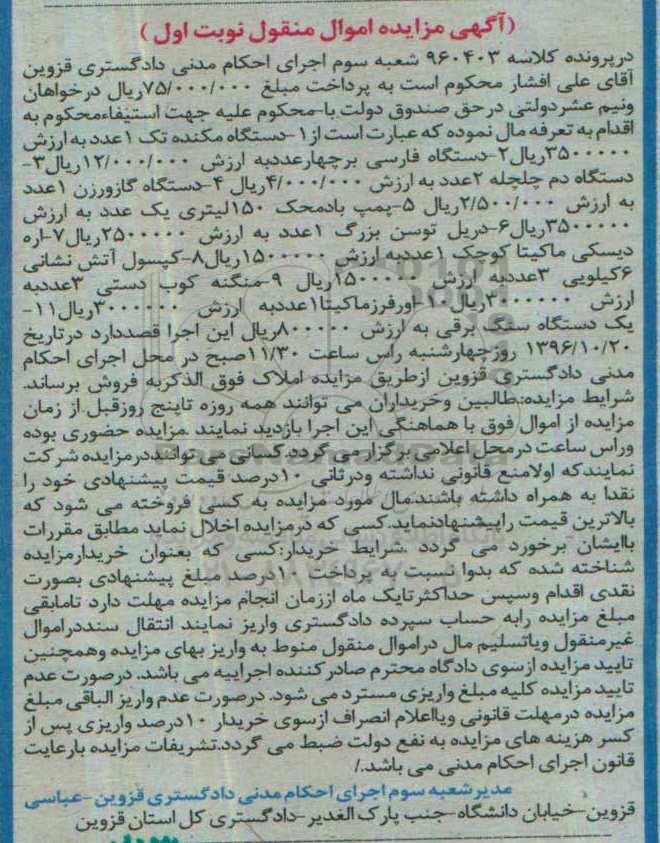 (آگهی مزایده اموال منقول نوبت اول)
درپرونده کلاسه ۹۶۰۴۰۳ شعبه سوم اجرای احکام مدنی دادگستری قزوین
آقای علی افشار محکوم است به پرداخت مبلغ ۷۵/۰۰۰/۰۰۰ریال درخواهان
ونیم عشردولتی درحق صندوق دولت با-محکوم علیه جهت استیفاءمحکوم به
اقدام به تعرفه مال نموده که عبارت است از۱-دستگاه مکنده تک ۱عددبه ارزش
۳۵۰۰۰۰۰ریال۲-دستگاه فارسی برچهارعددبه ارزش ۱۲/۰۰۰/۰۰۰ریال۳-
دستگاه دم چلچله ۲عدد به ارزش ۴/۰۰۰/۰۰۰ریال ۴-دستگاه گازورزن ۱عدد
به ارزش ۲/۵۰۰/۰۰۰ریال ۵-پمپ بادمحک ۱۵۰لیتری یک عدد به ارزش
۳۵۰۰۰۰۰ریال۶-دریل توسن بزرگ ۱عدد به ارزش ۲۵۰۰۰۰۰ریال۷-اره
دیسکی ماکیتا کوچک ۱عددبه ارزش ۱۵۰۰۰۰۰ریال۸-کپسول آتش نشانی
۶کیلویی ۳عددبه ارزش ۱۵۰۰۰۰۰ریال ۹-منگنه کوب دستی ۳عددبه
ارزش ۳۰۰۰۰۰۰ریال۱۰-اورفرزماکیتا۱عددبه ارزش ۳۰۰۰۰۰۰ریال۱۱-
یک دستگاه سنگ برقی به ارزش ۸۰۰۰۰۰ریال این اجرا قصددارد درتاریخ
۱۳۹۶/۱۰/۲۰ روزچهارشنبه راس ساعت ۱۱/۳۰صبح در محل اجرای احکام
مدنی دادگستری قزوین ازطریق مزایده املاک فوق الذکربه فروش برساند.
شرایط مزایده:طالبین وخریداران می توانند همه روزه تاپنج روزقبل از زمان
مزایده از اموال فوق با هماهنگی این اجرا بازدید نمایند .مزایده حضوری بوده
وراس ساعت درمحل اعلامی برگزار می گردد.کسانی می تواننددرمزایده شرکت
نمایندکه اولامنع قانونی نداشته ودرثانی ۱۰درصد قیمت پیشنهادی خود را
نقدا به همراه داشته باشندمال مورد مزایده به کسی فروخته می شود که
بالاترین قیمت راپیشنهادنماید.کسی که درمزایده اخلال نماید مطابق مقررات
باایشان برخورد می گردد .شرایط خریدار:کسی که بعنوان خریدارمزایده
شناخته شده که بدوا نسبت به پرداخت ۱۰درصد مبلغ پیشنهادی بصورت
نقدی اقدام وسپس حداکثرتایک ماه اززمان انجام مزایده مهلت دارد تامابقی
مبلغ مزایده رابه حساب سپرده دادگستری واریز نمایند انتقال سنددراموال
غیرمنقول ویاتسلیم مال دراموال منقول منوط به واریز بهای مزایده وهمچنین
تایید مزایده ازسوی دادگاه محترم صادرکننده اجراییه می باشد. درصورت عدم
تایید مزایده کلیه مبلغ واریزی مسترد می شود. درصورت عدم واریز الباقی مبلغ
مزایده درمهلت قانونی ویااعلام انصراف ازسوی خریدار ۱۰درصد واریزی پس از
کسر هزینه های مزایده به نفع دولت ضبط می گردد.تشریفات مزایده بارعایت
قانون اجرای احکام مدنی می باشد./
مدیرشعبه سوم اجرای احکام مدنی دادگستری قزوین-عباسی
قزوین-خیابان دانشگاه-جنب پارک الغدیر-دادگستری کل استان قزوین